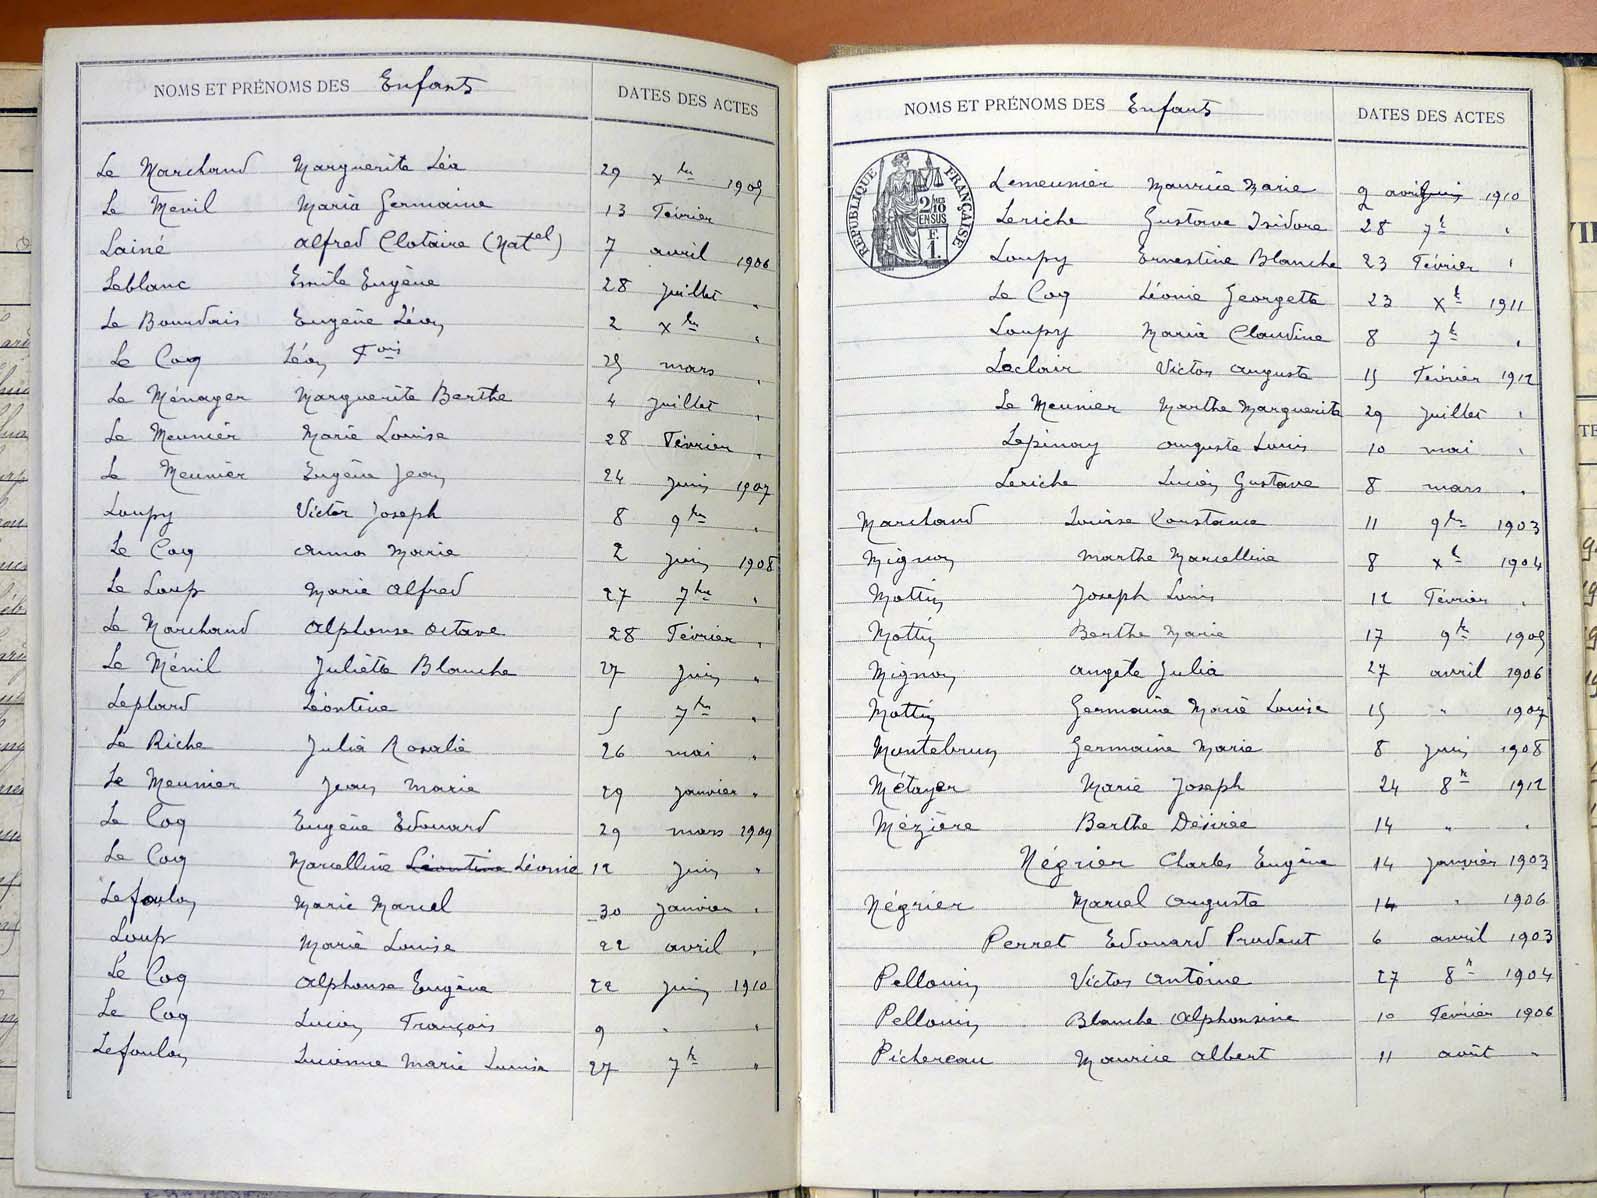 NOMS ET PRÉNOMS DES Enfants DATES DES ACTES
Le Marchand Marguerite Léa 29 Xbre 1905
Le Menil Maria Germaine 13 Février
Lainé Alfred Clotaire (Natel) 7 avril 1906
Leblanc Emile Eugène 28 juillet "
Le Bourdais Eugène Léon 2 Xbre "
Le Coq Léon Fois 25 mars "
Le Ménager Marguerite Berthe 4 juillet "
Le Meunier Marie Louise 28 Février "
Le Meunier Eugène Jean 24 juin 1907
Loupy Victor Joseph 8 9bre "
Le Coq Anna Marie 2 juin 1908
Le Loup Marie Alfred 27 7bre "
Le Marchand Alphonse Octave 28 Février "
Le Ménil Juliette Blanche 27 juin "
Leplard Léontine 5 7bre "
Le Riche Julia Rosalie 26 mai "
Le Meunier Jean Marie 29 janvier "
Le Coq Eugène Edouard 29 mars 1909
Le Coq Marcelline Léontine Léonie 12 juin "
Lefoulon Marie Marcel 30 janvier "
Loup Marie Louise 22 avril "
Le Coq Alphonse Eugène 22 juin 1910
Le Coq Lucien François 9 " "
Lefoulon Lucienne Marie Louise 27 7b "
NOMS ET PRÉNOMS DES Enfants DATES DES ACTES
RÉPUBLIQUE FRANÇAISE
2/10 EN SUS
F. 1.
Lemeunier Maurice Marie 2 avril juin 1910
Leriche Gustave Isidore 28 7b "
Loupy Ernestine Blanche 23 Février "
Le Coq Léonie Georgette 23 Xb 1911
Loupy Maria Claudine 8 7b "
Leclair Victor Auguste 15 Février 1912
Le Meunier Marthe Marguerite 29 juillet "
Lepinay Auguste Louis 10 mai "
Leriche Lucien Gustave 8 mars "
Marchand Louise Constance 11 9bre 1903
Mignon Marthe Marcelline 8 Xb 1904
Mottin Joseph Louis 12 Février "
Mottin Berthe Marie 17 9b 1905
Mignon Angèle Julia 27 avril 1906
Mottin Germaine Marie Louise 15 " 1907
Montebrun Germaine Marie 8 juin 1908
Métayer Marie Joseph 24 8b 1912
Mézière Berthe Désirée 14 " "
Négrier Charles Eugène 14 janvier 1903
Négrier Marcel Auguste 14 " 1906
Perret Edouard Prudent 6 avril 1903
Pellouin Victor Antoine 27 8b 1904
Pellouin Blanche Alphonsine 10 Février 1906
Pichereau Maurice Albert 11 août "